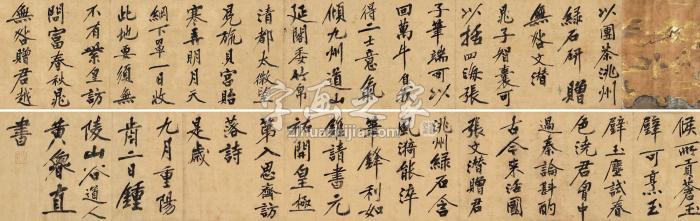 以團茶洮州
綠石研贈
無咎文潛
晁子智囊可
以括四海張
子筆端可以
回萬牛自我
得二士意氣
傾九州道山
延閣委竹帛
清都太微望
冕旒貝宮胎
寒弄明月天
網下罩一日收
此地要須無
不有紫皇訪
問富春秋晁
無咎贈君越
侯所貢蒼玉
璧可烹玉
璧玉塵試春
色洗君胸中
過秦論斟酌
古今來活國
張文潛贈君
洮州綠石含
風漪能淬
筆鋒利如
錐請書元
祐開皇極
第入思齊訪
落詩
是歲
九月重陽
前二日鍾
陵山谷道人
黃魯直
書
字画之家
zihuazhijia.com